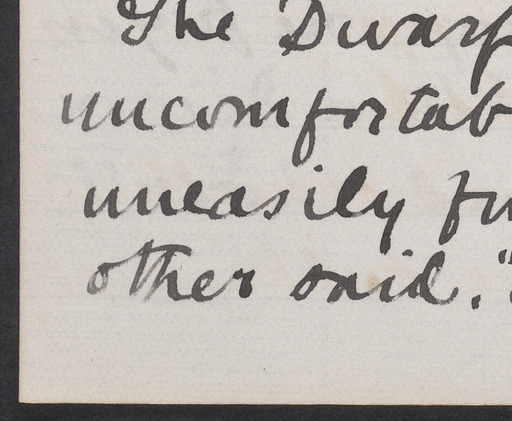 The Dwarf
uncomfortab
uneasily fr
other said."